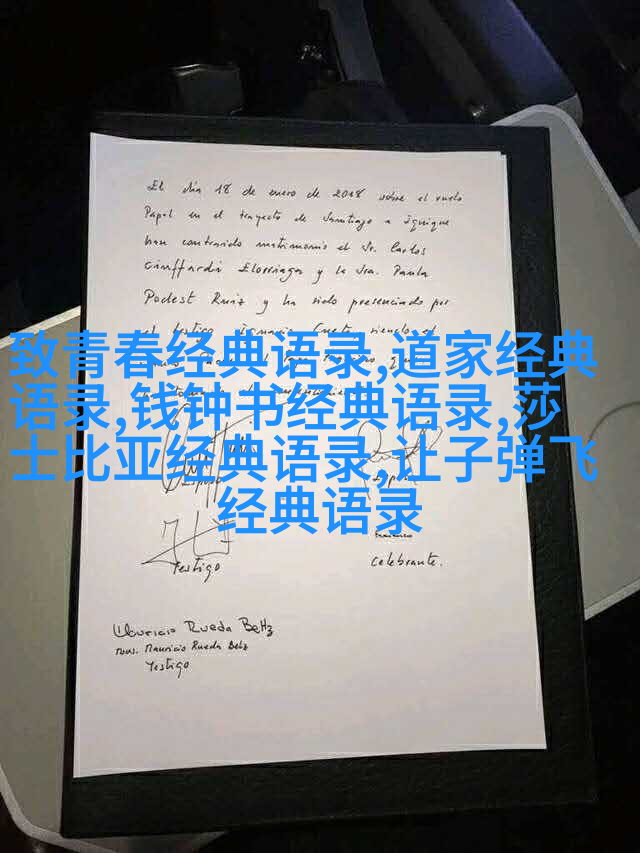 El día 18 de enero de 2018 sobre el vuelo
Papal en el trayecto de Santiago a Iquique
han contraído matrimonio el Sr. Carlos
Ciuffardi Elorriaga y la Sra. Paula
Podest Ruiz y ha sido presenciado por
el testigo Ignacio Cueto siendo el
致青春经典语录,道家经典
语录,钱钟书经典语录,莎
士比亚经典语录,让子弹飞
经典语录
Esposo
Testigo
Franciscus
Celebrante.
Mauricio Rueda Beltz
Mons. Mauricio Rueda Beltz
Testigo